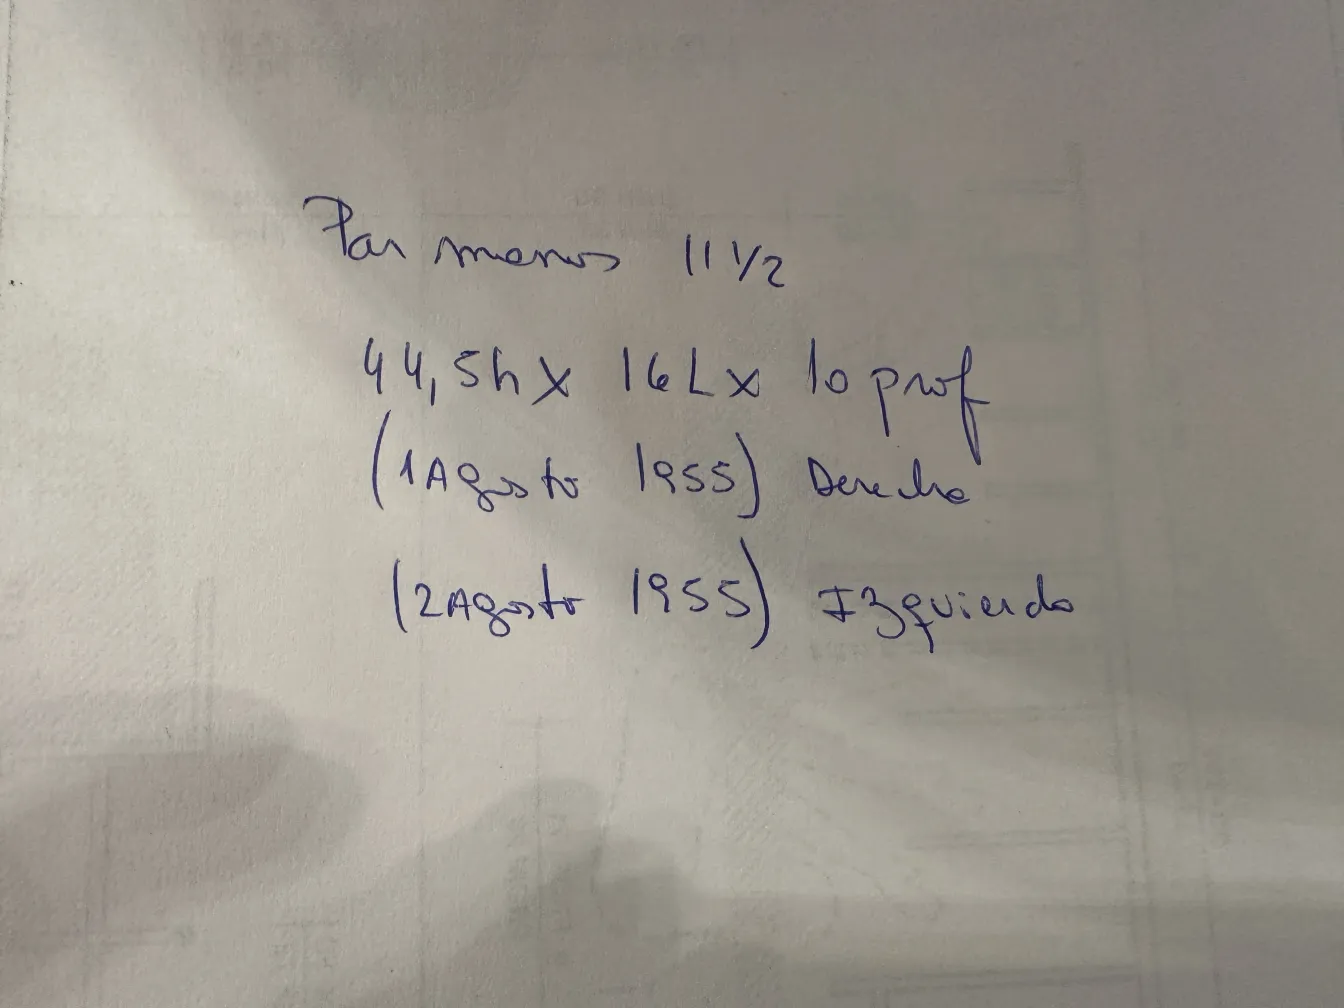 Par manos 11 1/2
44,5h x 16L x 10 prof
(1 Agosto 1955) Derecha
(2 Agosto 1955) Izquierda